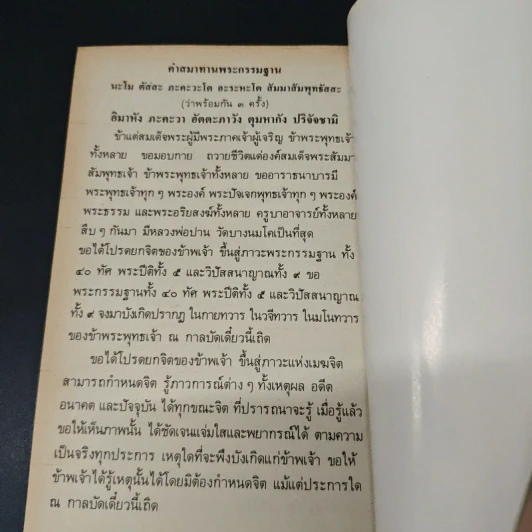 คำสมาทานพระกรรมฐาน
นะโม ตัสสะ ภะคะวะโต อะระหะโต สัมมาสัมพุทธัสสะ
(ว่าพร้อมกัน ๓ ครั้ง)
อิมาหัง ภะคะวา อัตตะภาวัง ตุมหากัง ปริจัจชามิ
ข้าแต่สมเด็จพระผู้มีพระภาคเจ้าผู้เจริญ ข้าพระพุทธเจ้า
ทั้งหลาย ขอมอบกาย ถวายชีวิตแด่องค์สมเด็จพระสัมมา
สัมพุทธเจ้า ข้าพระพุทธเจ้าทั้งหลาย ขออาราธนาบารมี
พระพุทธเจ้าทุก ๆ พระองค์ พระปัจเจกพุทธเจ้าทุก ๆ พระองค์
พระธรรม และพระอริยสงฆ์ทั้งหลาย ครูบาอาจารย์ทั้งหลาย
สืบ ๆ กันมา มีหลวงพ่อปาน วัดบางนมโคเป็นที่สุด
ขอได้โปรดยกจิตของข้าพเจ้า ขึ้นสู่ภาวะพระกรรมฐาน ทั้ง
๔๐ ทัศ พระปีติทั้ง ๕ และวิปัสสนาญาณทั้ง ๙ ขอ
พระกรรมฐานทั้ง ๔๐ ทัศ พระปีติทั้ง ๕ และวิปัสสนาญาณ
ทั้ง ๙ จงมาบังเกิดปรากฏ ในกายทวาร ในวจีทวาร ในมโนทวาร
ของข้าพระพุทธเจ้า ณ กาลบัดเดี๋ยวนี้เถิด
ขอได้โปรดยกจิตของข้าพเจ้า ขึ้นสู่ภาวะแห่งเมฆจิต
สามารถกำหนดจิต รู้ภาวการณ์ต่าง ๆ ทั้งเหตุผล อดีต
อนาคต และปัจจุบัน ได้ทุกขณะจิต ที่ปรารถนาจะรู้ เมื่อรู้แล้ว
ขอให้เห็นภาพนั้น ได้ชัดเจนแจ่มใสและพยากรณ์ได้ ตามความ
เป็นจริงทุกประการ เหตุใดที่จะพึงบังเกิดแก่ข้าพเจ้า ขอให้
ข้าพเจ้าได้รู้เหตุนั้นได้โดยมิต้องกำหนดจิต แม้แต่ประการใด
ณ กาลบัดเดี๋ยวนี้เถิด